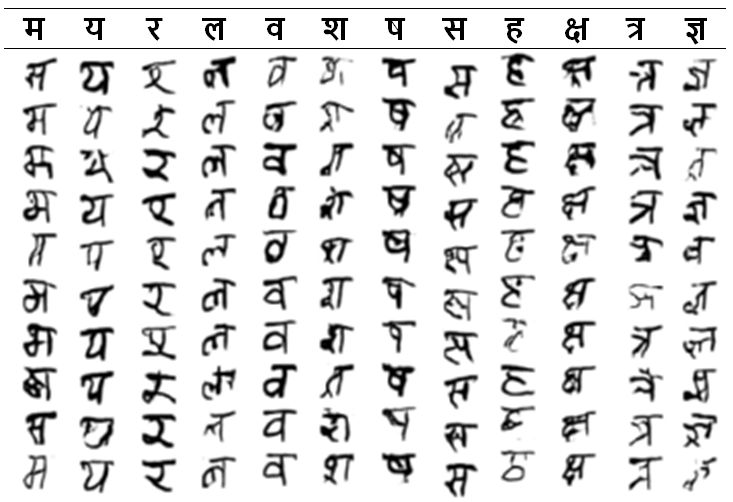 म य र ल व श ष स ह क्ष त्र ज्ञ
स य र ल व ष स ह क्ष त्र ज्ञ
म य र ल श ष ह क्ष त्र ज्ञ
म य र ल व ष स ह क्ष त्र
म य र ल व श ष स ह क्ष त्र ज्ञ
प र ल व श ष ह क्ष त्र व
म प र ल व श ष ह क्ष ज्ञ
भ य र ल व श ष स ह क्ष त्र
य र ल व त ष स ह क्ष
स र ल व श स ह क्ष त्र ज्ञ
म य र ल व श ष स ठ क्ष त्र